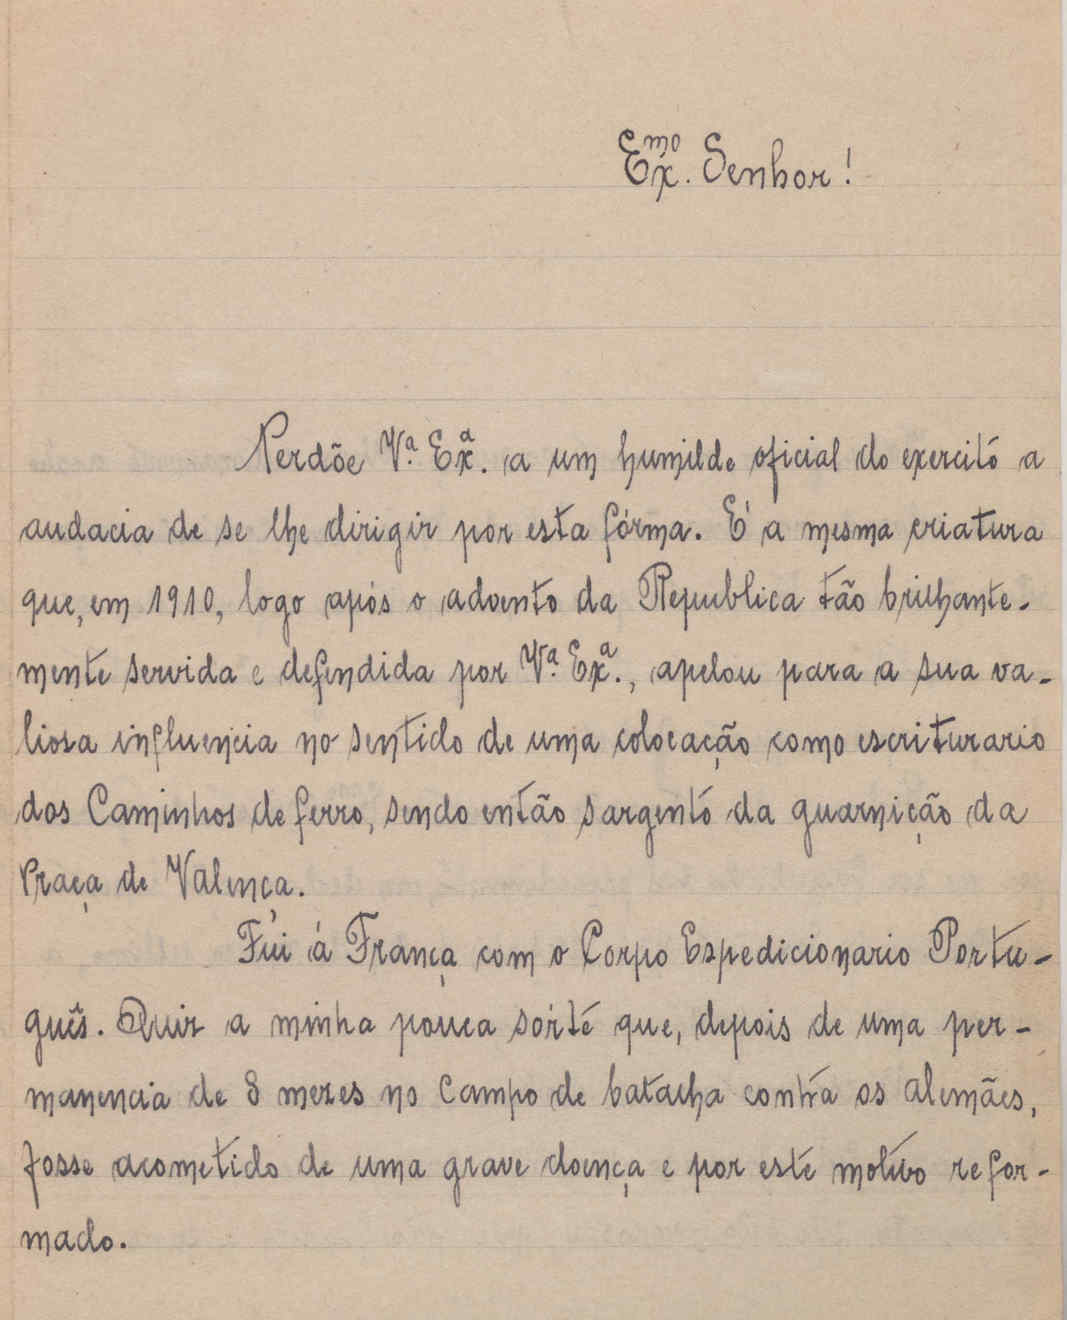 Exmo. Senhor!
Perdõe Vª. Exª. a um humilde oficial do exercito a
audacia de se lhe dirigir por esta fórma. É a mesma criatura
que, em 1910, logo após o advento da Republica tão brilhante-
mente servida e defendida por Vª. Exª., apelou para a sua va-
liosa influencia no sentido de uma colocação como escriturario
dos Caminhos de ferro, sendo então sargento da guarnição da
Praça de Valença.
Fui á França com o Corpo Espedicionario Portu-
guês. Quiz a minha pouca sórte que, depois de uma per-
manencia de 8 mezes no Campo de batalha contra os alemães,
fosse acometido de uma grave doença e por este motivo refor-
mado.